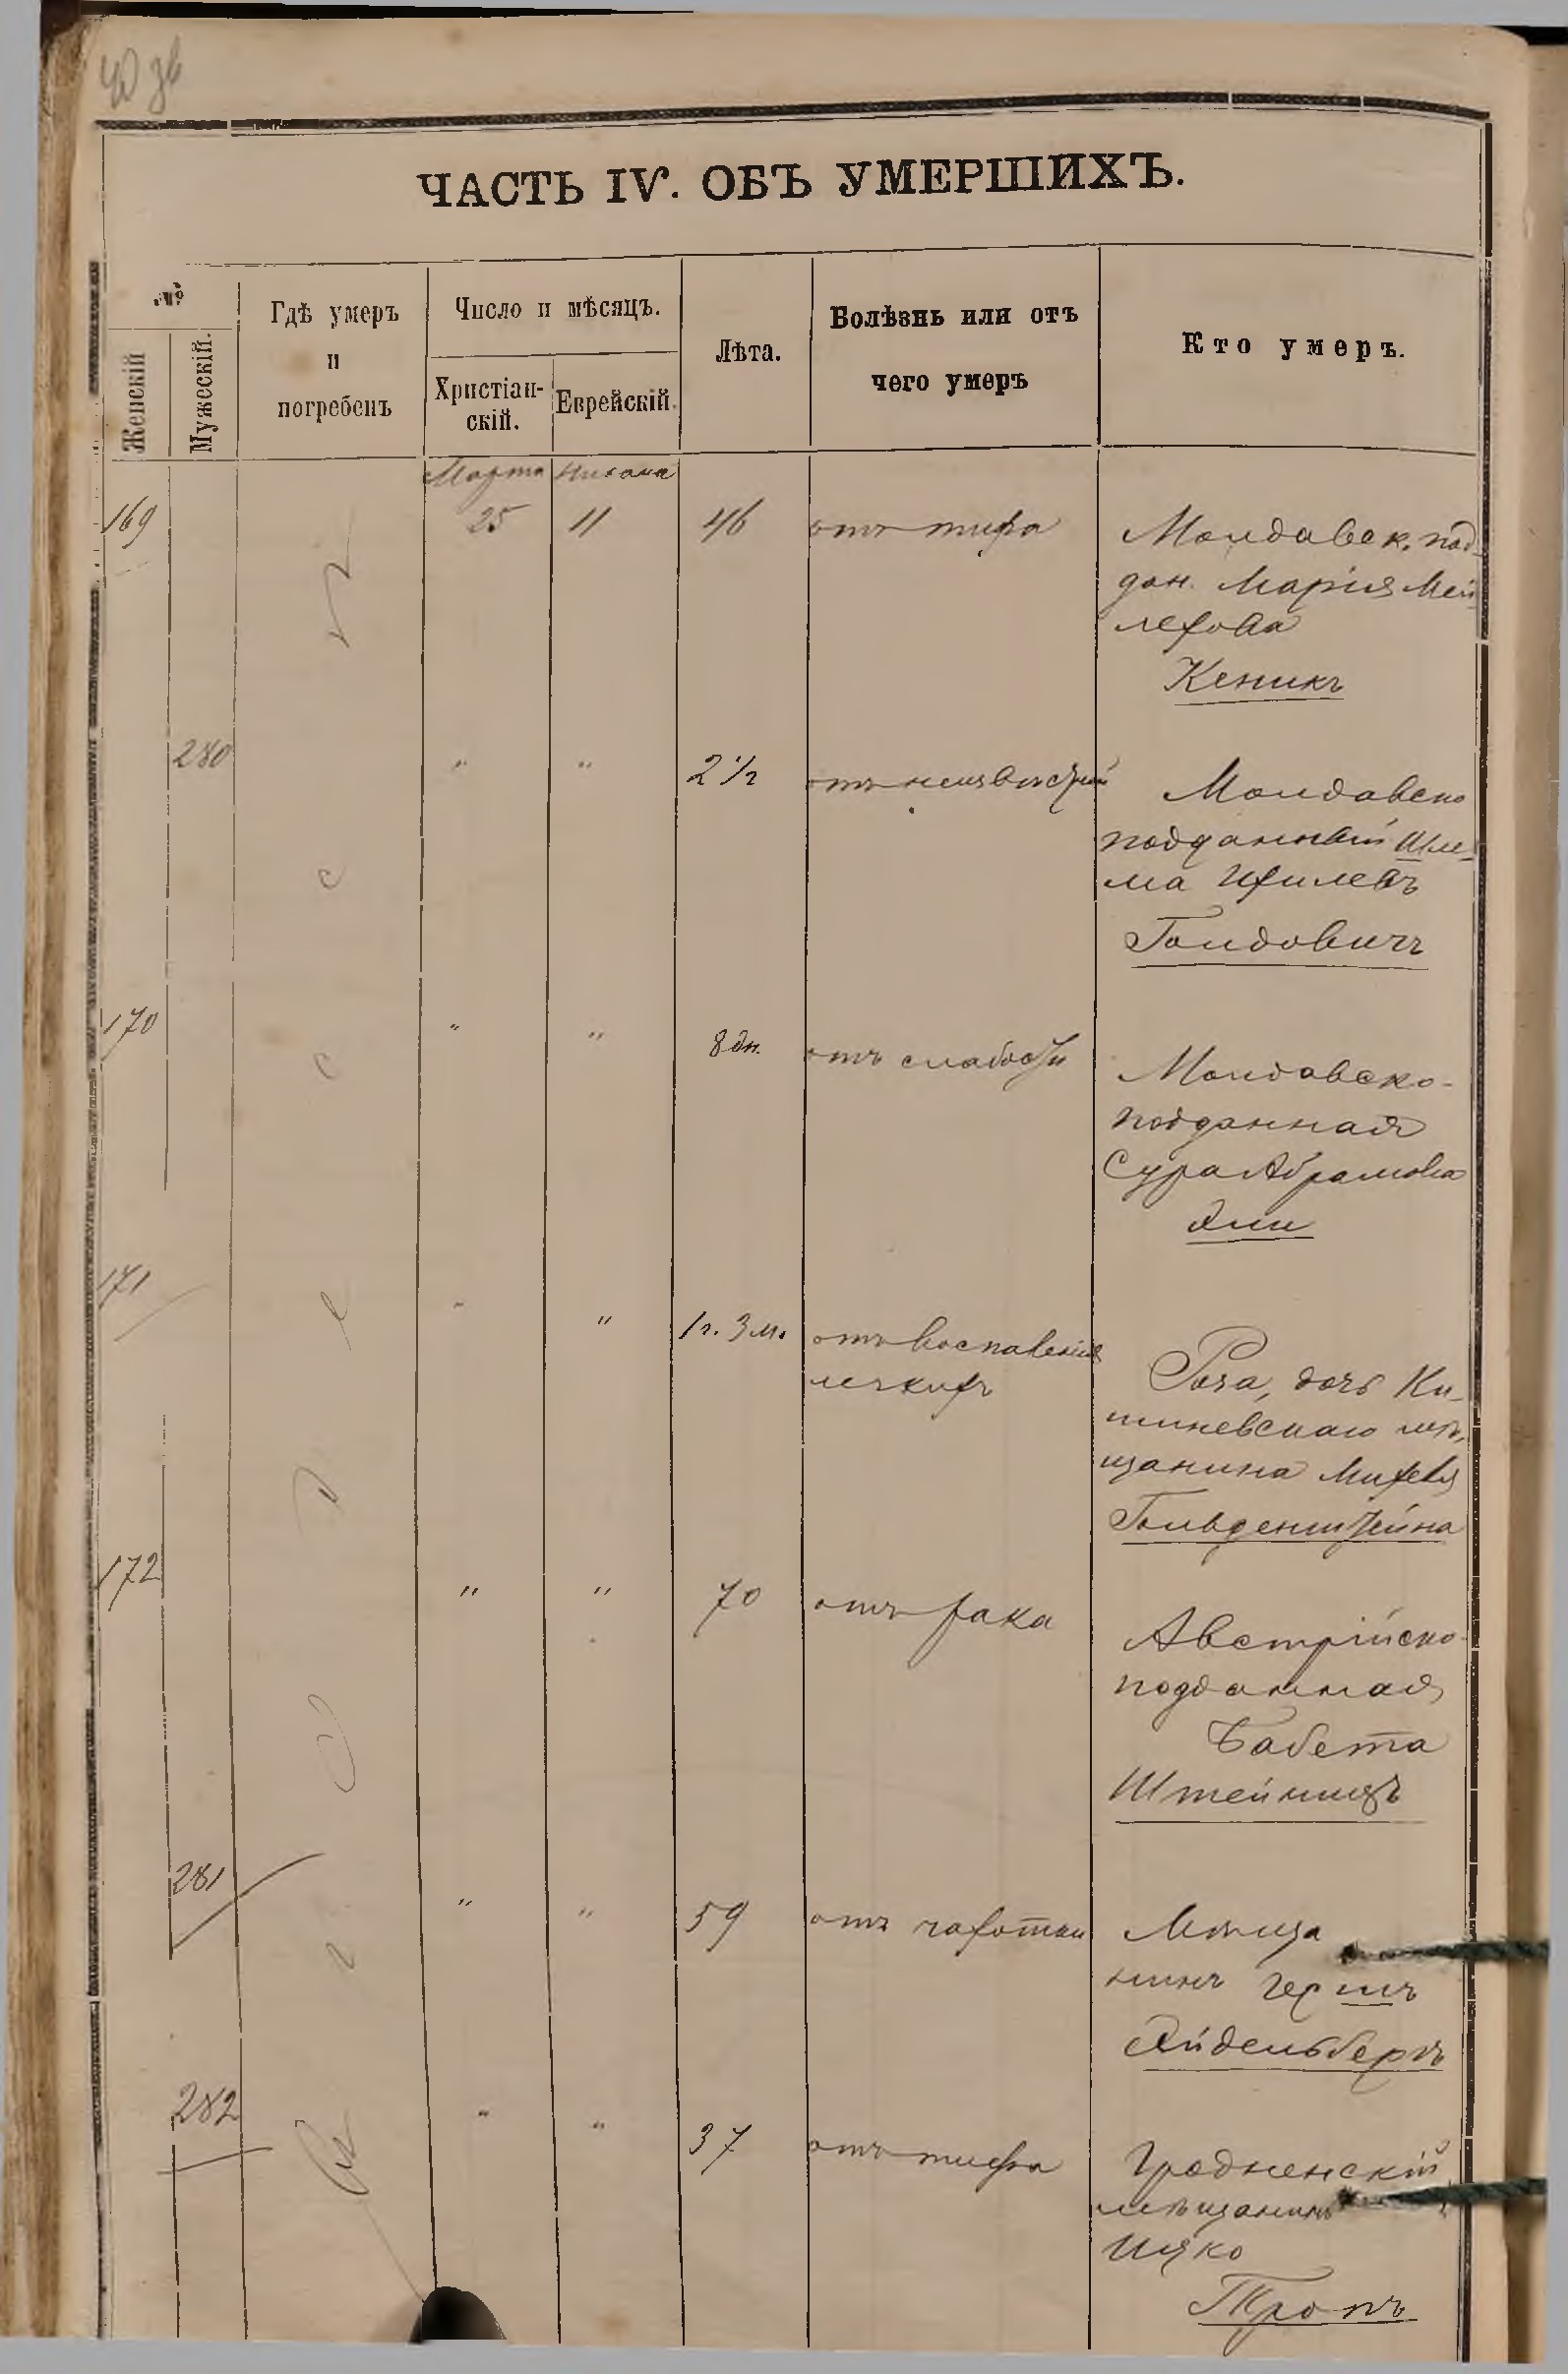 ЧАСТЬ IV. ОБЪ УМЕРШИХЪ.
№
Женскій
Мужескій.
Гдѣ умеръ
и
погребенъ
Число и мѣсяцъ.
Христіан-
скій.
Еврейскій.
Лѣта.
Болѣзнь или отъ
чего умеръ
Кто умеръ.
Марта Нисана
169 25 11 46 отъ тифа
Молдавск. под-
дан. Марія Мей-
лехова
Кеникъ
280 " " 2 1/2 отъ неизвѣстной
Молдавско
подданный Шле-
ма Ихилевъ
Голдовичъ
170 " " 8 дн. отъ слабости
Молдавско-
подданная
Сура Абрамова
171 " " 1 г. 3 м. отъ воспаленія
легкихъ
Роза, дочь Ки-
шиневскаго мѣ-
щанина Михеля
Гольденштейна
172 " " 70 отъ рака
Австрійско-
подданная
Бабета
Штейницъ
281 " " 59 отъ чахотки
Мѣща
нинъ Гершъ
Айдельбергъ
282 " " 37 отъ тифа
Гродненскій
мѣщанинъ
Ицко
Тропъ
Одесса